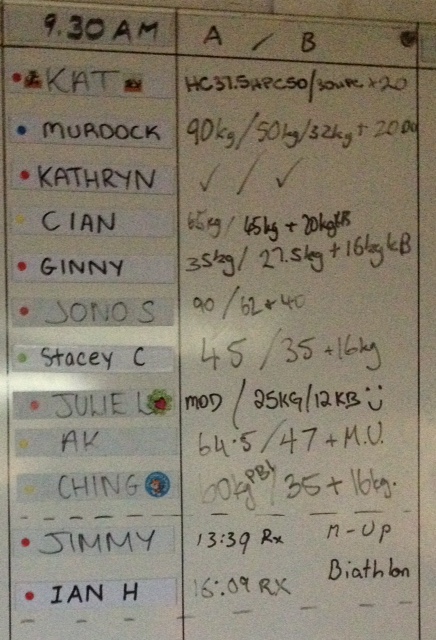 9.30 AM A / B
KAT HC37.5HPC50/30UPC +20
MURDOCK 90kg/50kg/32kg + 20
KATHRYN ✓ / ✓
CIAN 65kg / 45kg + 20kgKB
GINNY 35kg/ 27.5kg +16kg KB
JONO S 90 /62 + 40
Stacey C 45 /35 +16kg
JULIE L MOD / 25KG/12KB
AK 64.5/47 + M.U.
CHING 60kg PB!/ 35 + 16kg.
JIMMY 13:39 Rx M-UP
IAN H 16:09 RX Biathlon